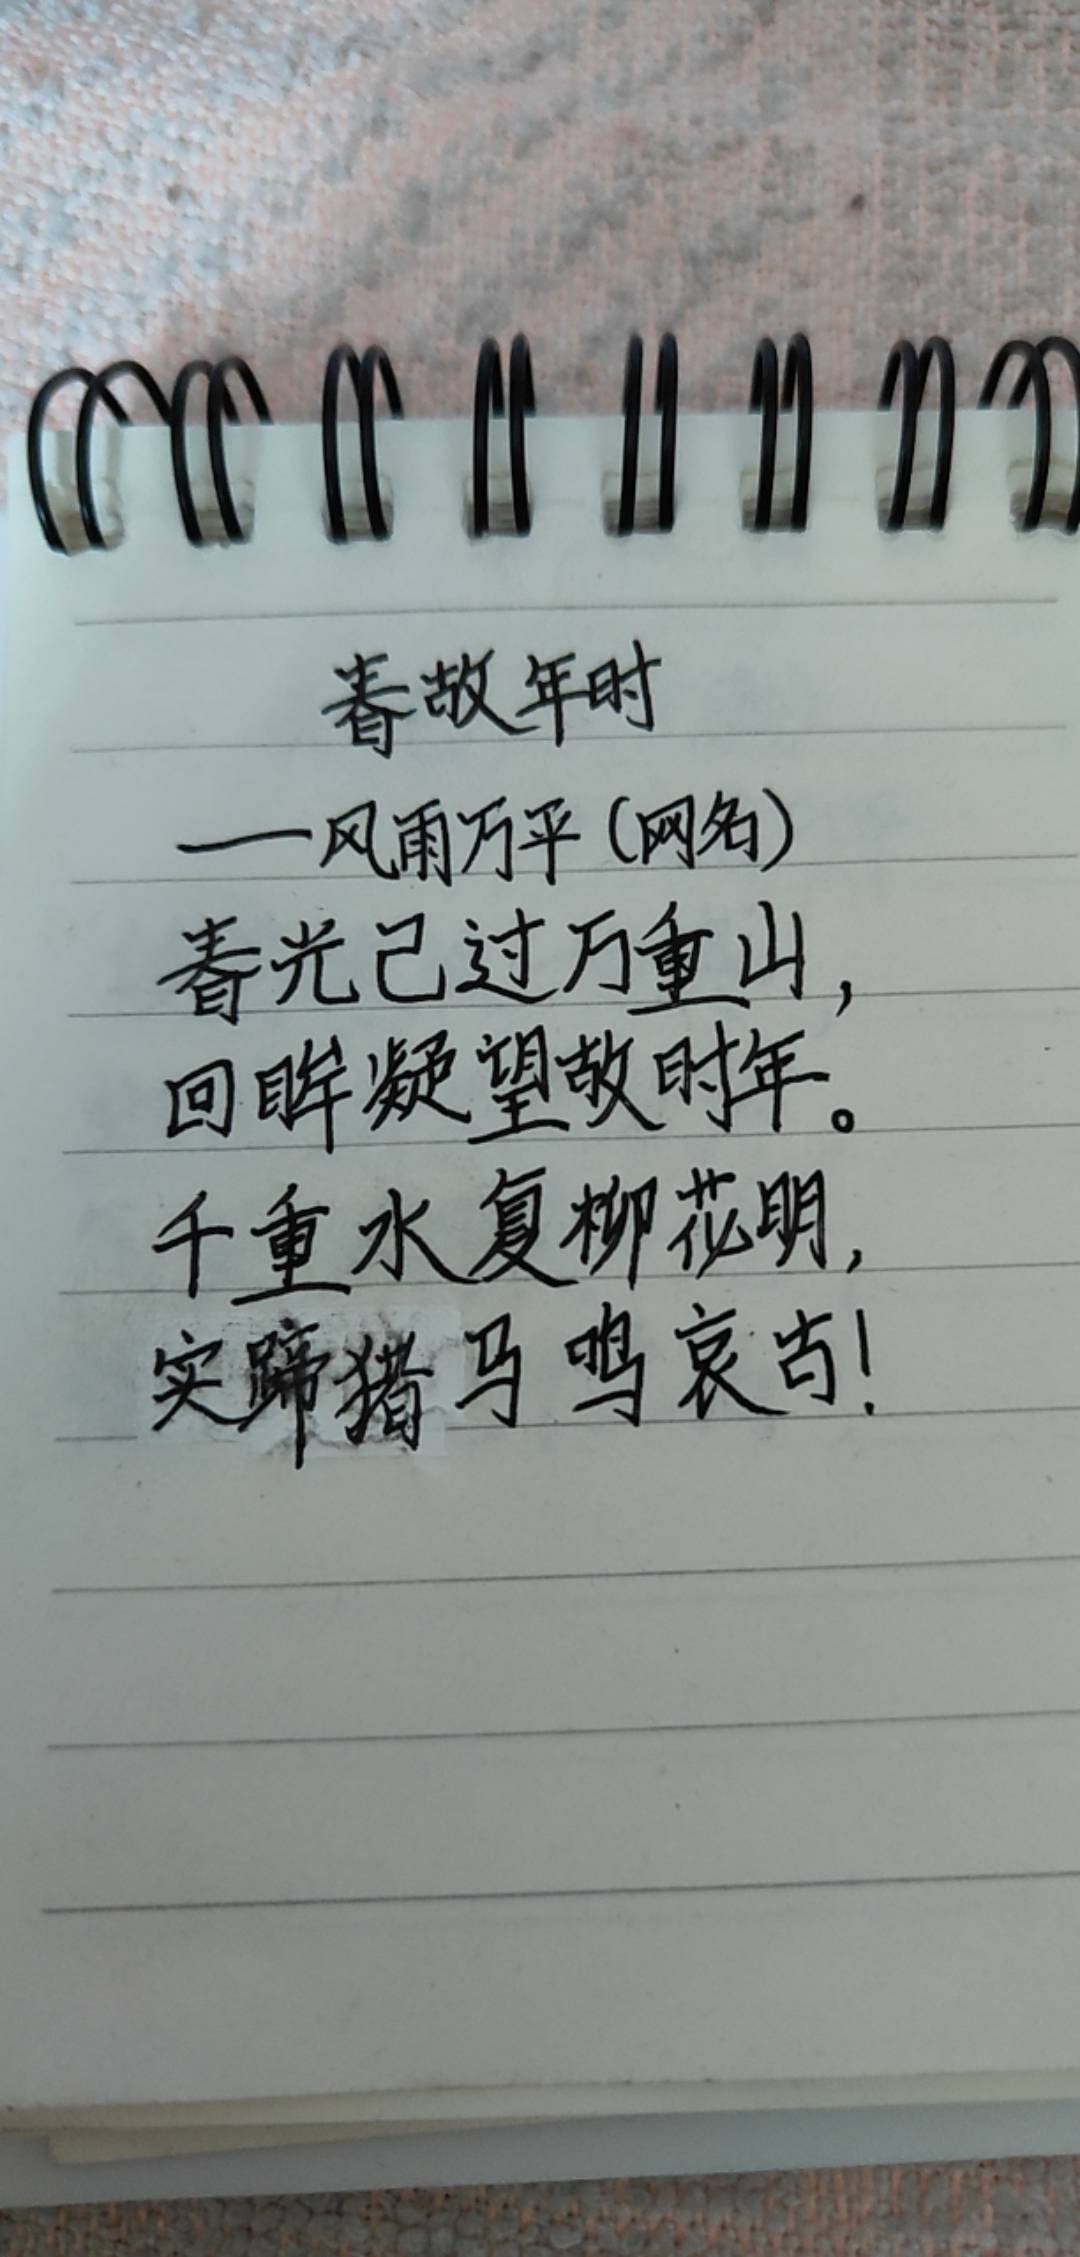 春故年时
——风雨万平(网名)
春光己过万重山，
回眸凝望故时年。
千重水复柳花明，
实蹄猪马鸣哀古！